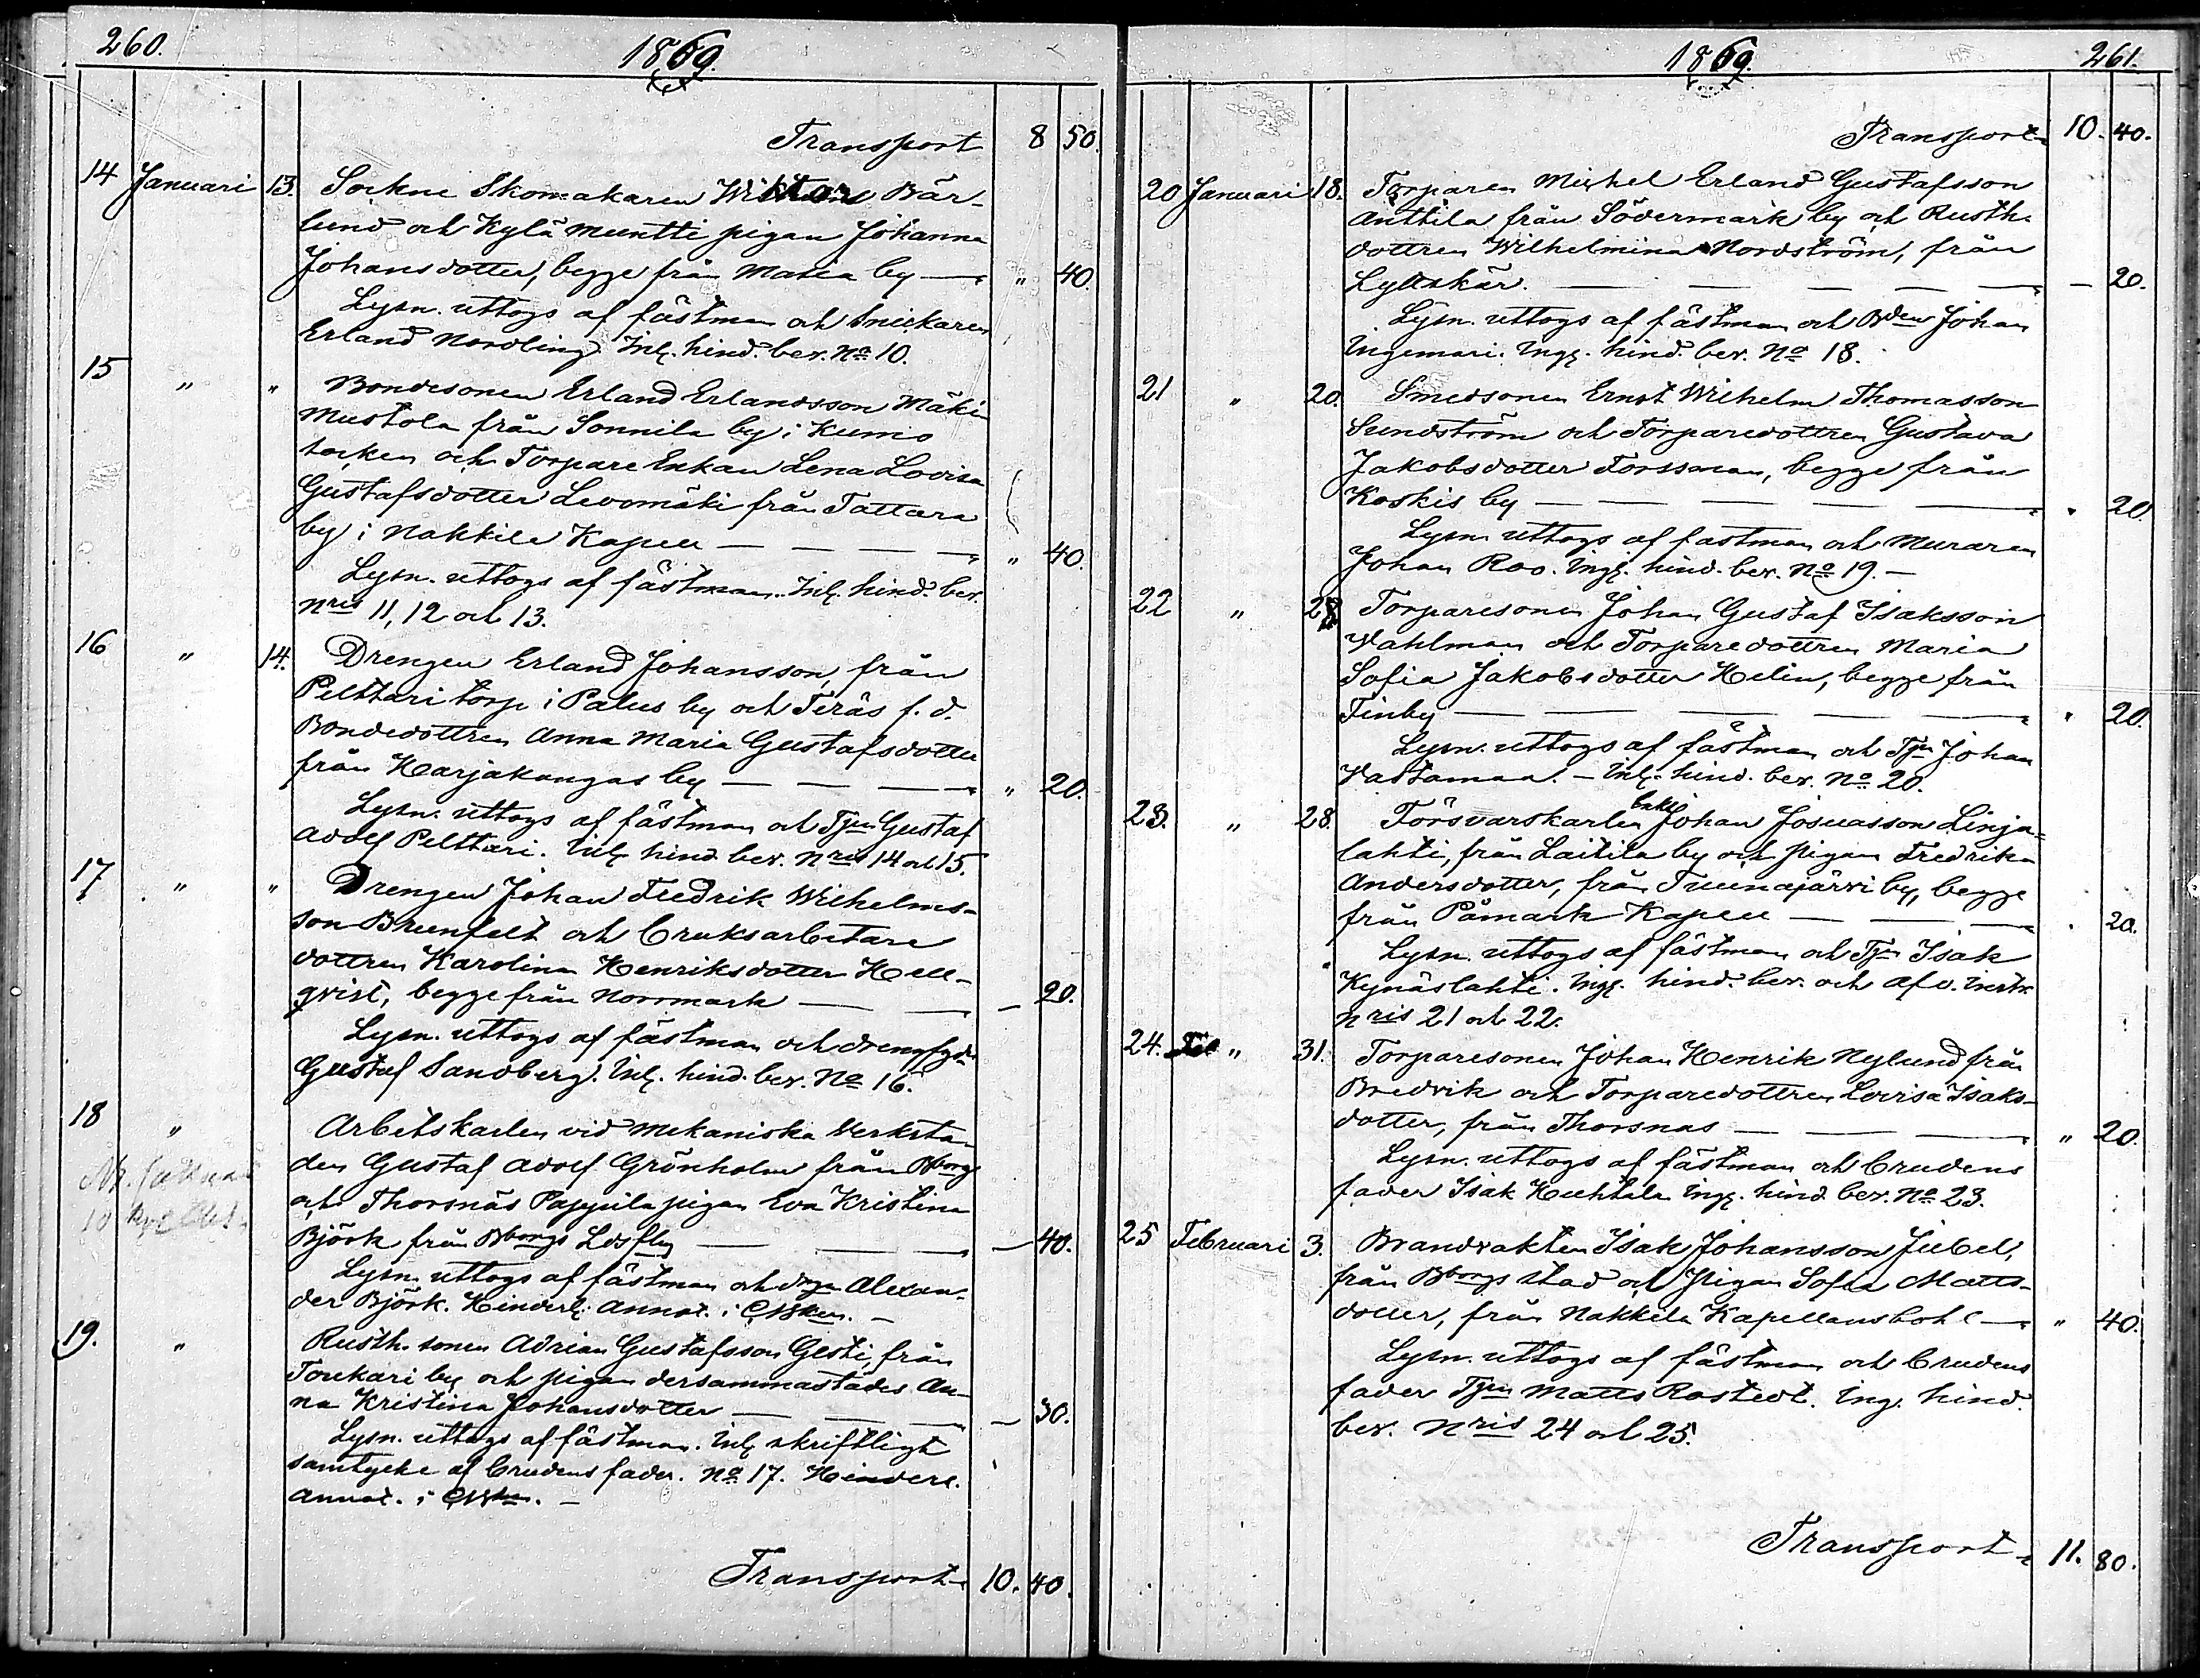 260.
1869.
Transport 8 50.
14 Januari 13. Sockne Skomakaren Wiktor Bär-
lund och Kylä Muntti pigan Johanna
Johansdotter, begge från Masia by — " 40.
Lysn. uttogs af fästman och Snickaren
Erland Nordling. Inl. hind. bev. No 10.
15 " " Bondesonen Erland Erlandsson Mäki
Mustola från Sonnila by i Kumo
socken och Torpare Enkan Lena Lovisa
Gustafsdotter Levomäki från Tattara
by i Nakkila Kapell — — — " 40.
Lysn. uttogs af fästman. Inl. hind. bev.
Nris 11, 12 och 13.
16 " 14. Drengen Erland Johansson, från
Pelttari torp i Palus by och Teräs f. d.
Bondedottren Anna Maria Gustafsdotter
från Harjakangas by — — — " 20.
Lysn. uttogs af fästman och Tpn Gustaf
Adolf Pelttari. Inl. hind. bev. Nris 14 och 15.
17 " " Drengen Johan Fredrik Wilhelms-
son Brunfelt och bruksarbetare
dottren Karolina Henriksdotter Hell-
qvist, begge från Norrmark — — — 20.
Lysn. uttogs af fästman och
Gustaf Sandberg. Inl. hind. bev. No 16.
18 " Arbetskarlen vid Mekaniska Verksta-
den Gustaf Adolf Grönholm från Bborg
och Thorsnäs Pappila pigan Eva Kristina
Björk från Bborgs Ldsfsg — — — 40.
Lysn. uttogs af fästman och drgn Alexan-
der Björk. Hinderl. Annot. i CNBken. —
19. " Rusth. sonen Adrian Gustafsson Gesti, från
Toukari by och pigan dersammastädes An-
na Kristina Johansdotter — — — 30.
Lysn. uttogs af fästman. Inl. skriftligt
samtycke af brudens fader. No 17. Hinderl.
Annot. i CNBken. —
Transport 10. 40.
1869.
261.
Transport 10. 40.
20 Januari 18. Torparen Michel Erland Gustafsson
Anttila från Södermark by och Rusth.
dottren Wilhelmina Nordström, från
Lyttskär. — — — — — 20.
Lysn. uttogs af fästman och Bden Johan
Ingemari. Ingg. hind. bev. No 18.
21 " 20. Smedsonen Ernst Wilhelm Thomasson
Sundström och Torparedottren Gustava
Jakobsdotter Forssman, begge från
Koskis by — — — — " 20.
Lysn. uttogs af fästman och Muraren
Johan Roo. Ingg. hind. bev. No 19. —
22 " Torparesonen Johan Gustaf Isaksson
Wahlman och Torparedottren Maria
Sofia Jakobsdotter Helin, begge från
Finby — — — — " 20.
Lysn. uttogs af fästman och Tpn Johan
Wastamaa. — Inl. hind. bev. No 20.
23. " 28. Försvarskarlen Johan Josuasson Linja-
lahti, från Laitila by och pigan Fredrika
Andersdotter, från Tuunajärvi by, begge
från Påmark Kapell — — — 20.
Lysn. uttogs af fästman och Tpn Isak
Kynäslahti. Ingg. hind. bev. och afv. Instr.
Nris 21 och 22.
24. " 31. Torparesonen Johan Henrik Nylund från
Bredvik och Torparedottren Lovisa Isaks-
dotter, från Thorsnäs — — — " 20.
Lysn. uttogs af fästman och brudens
fader Isak Huhtala. Ingg. hind. bev. No 23.
25 Februari 3. Brandvakten Isak Johansson Jubel,
från Bborgs stad och Pigan Sofia Matts-
dotter, från Nakkila Kapellansbohl — " 40.
Lysn. uttogs af fästman och brudens
fader Tpn Matts Rostedt. Ing. hind.
bev. Nris 24 och 25.
Transport 11. 80.